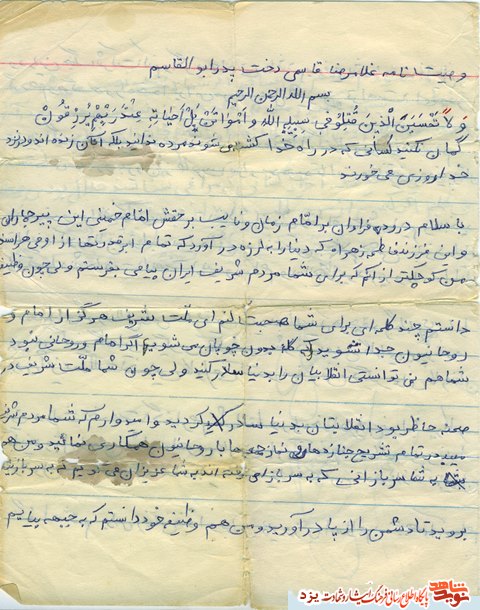 وصیت نامه غلامرضا قاسمی دخت پدر ابوالقاسم
بسم الله الرحمن الرحیم
وَلاَ تَحْسَبَنَّ الَّذینَ قُتِلُو فی سَبیلِ اللهِ اَمْوَاتَنْ بَلْ اَحیَاءٍ عِنْدَ رَبِّهِمْ یُرْزَقُونْ
گمان نکنید کسانی که در راه خدا کشته می شوند مرده بلکه آنان زنده اند و نزد
خدا روزی می خورند
با سلام و درود فراوان بر امام زمان و نایب بر حقش امام خمینی این پیر جماران
و این فرزند فاطمه زهرا که دنیا را به لرزه در آورد که تمام ابرقدرتها از او می
من کوچکتر از آنم که برای شما مردم شریف ایران پیامی بفرستم ولی چون وظیفه
دانستم چند کلمه ای برای شما صحبت کنم ای ملت شریف هرگز از امام و
روحانیون جدا نشوید که گله بدون چوپان می شوید اگر امام و روحانی نبود
شما هم نمی توانستی انقلابیان را بدنیا سادر کنید ولی چون شما ملت شریف در
صحنه حاظر بود انقلابتان بدنیا سادر کردید و امیدوارم که شما مردم شریف
در تمام تشریح جنازه ها و نماز جمعه ها با روحانیون همکاری نمائید و من هم
به شما سربازانی که به سربازی نرفته اند به شما عزیزان می گویم که به سربازی
بروید تا دشمن را از پا در آورید و من هم وظیفه خود دانستم که به جبهه بیایم
نوید شاهد
پایگاه اطلاع رسانی فرهنگ ایثار و شهادت یزد